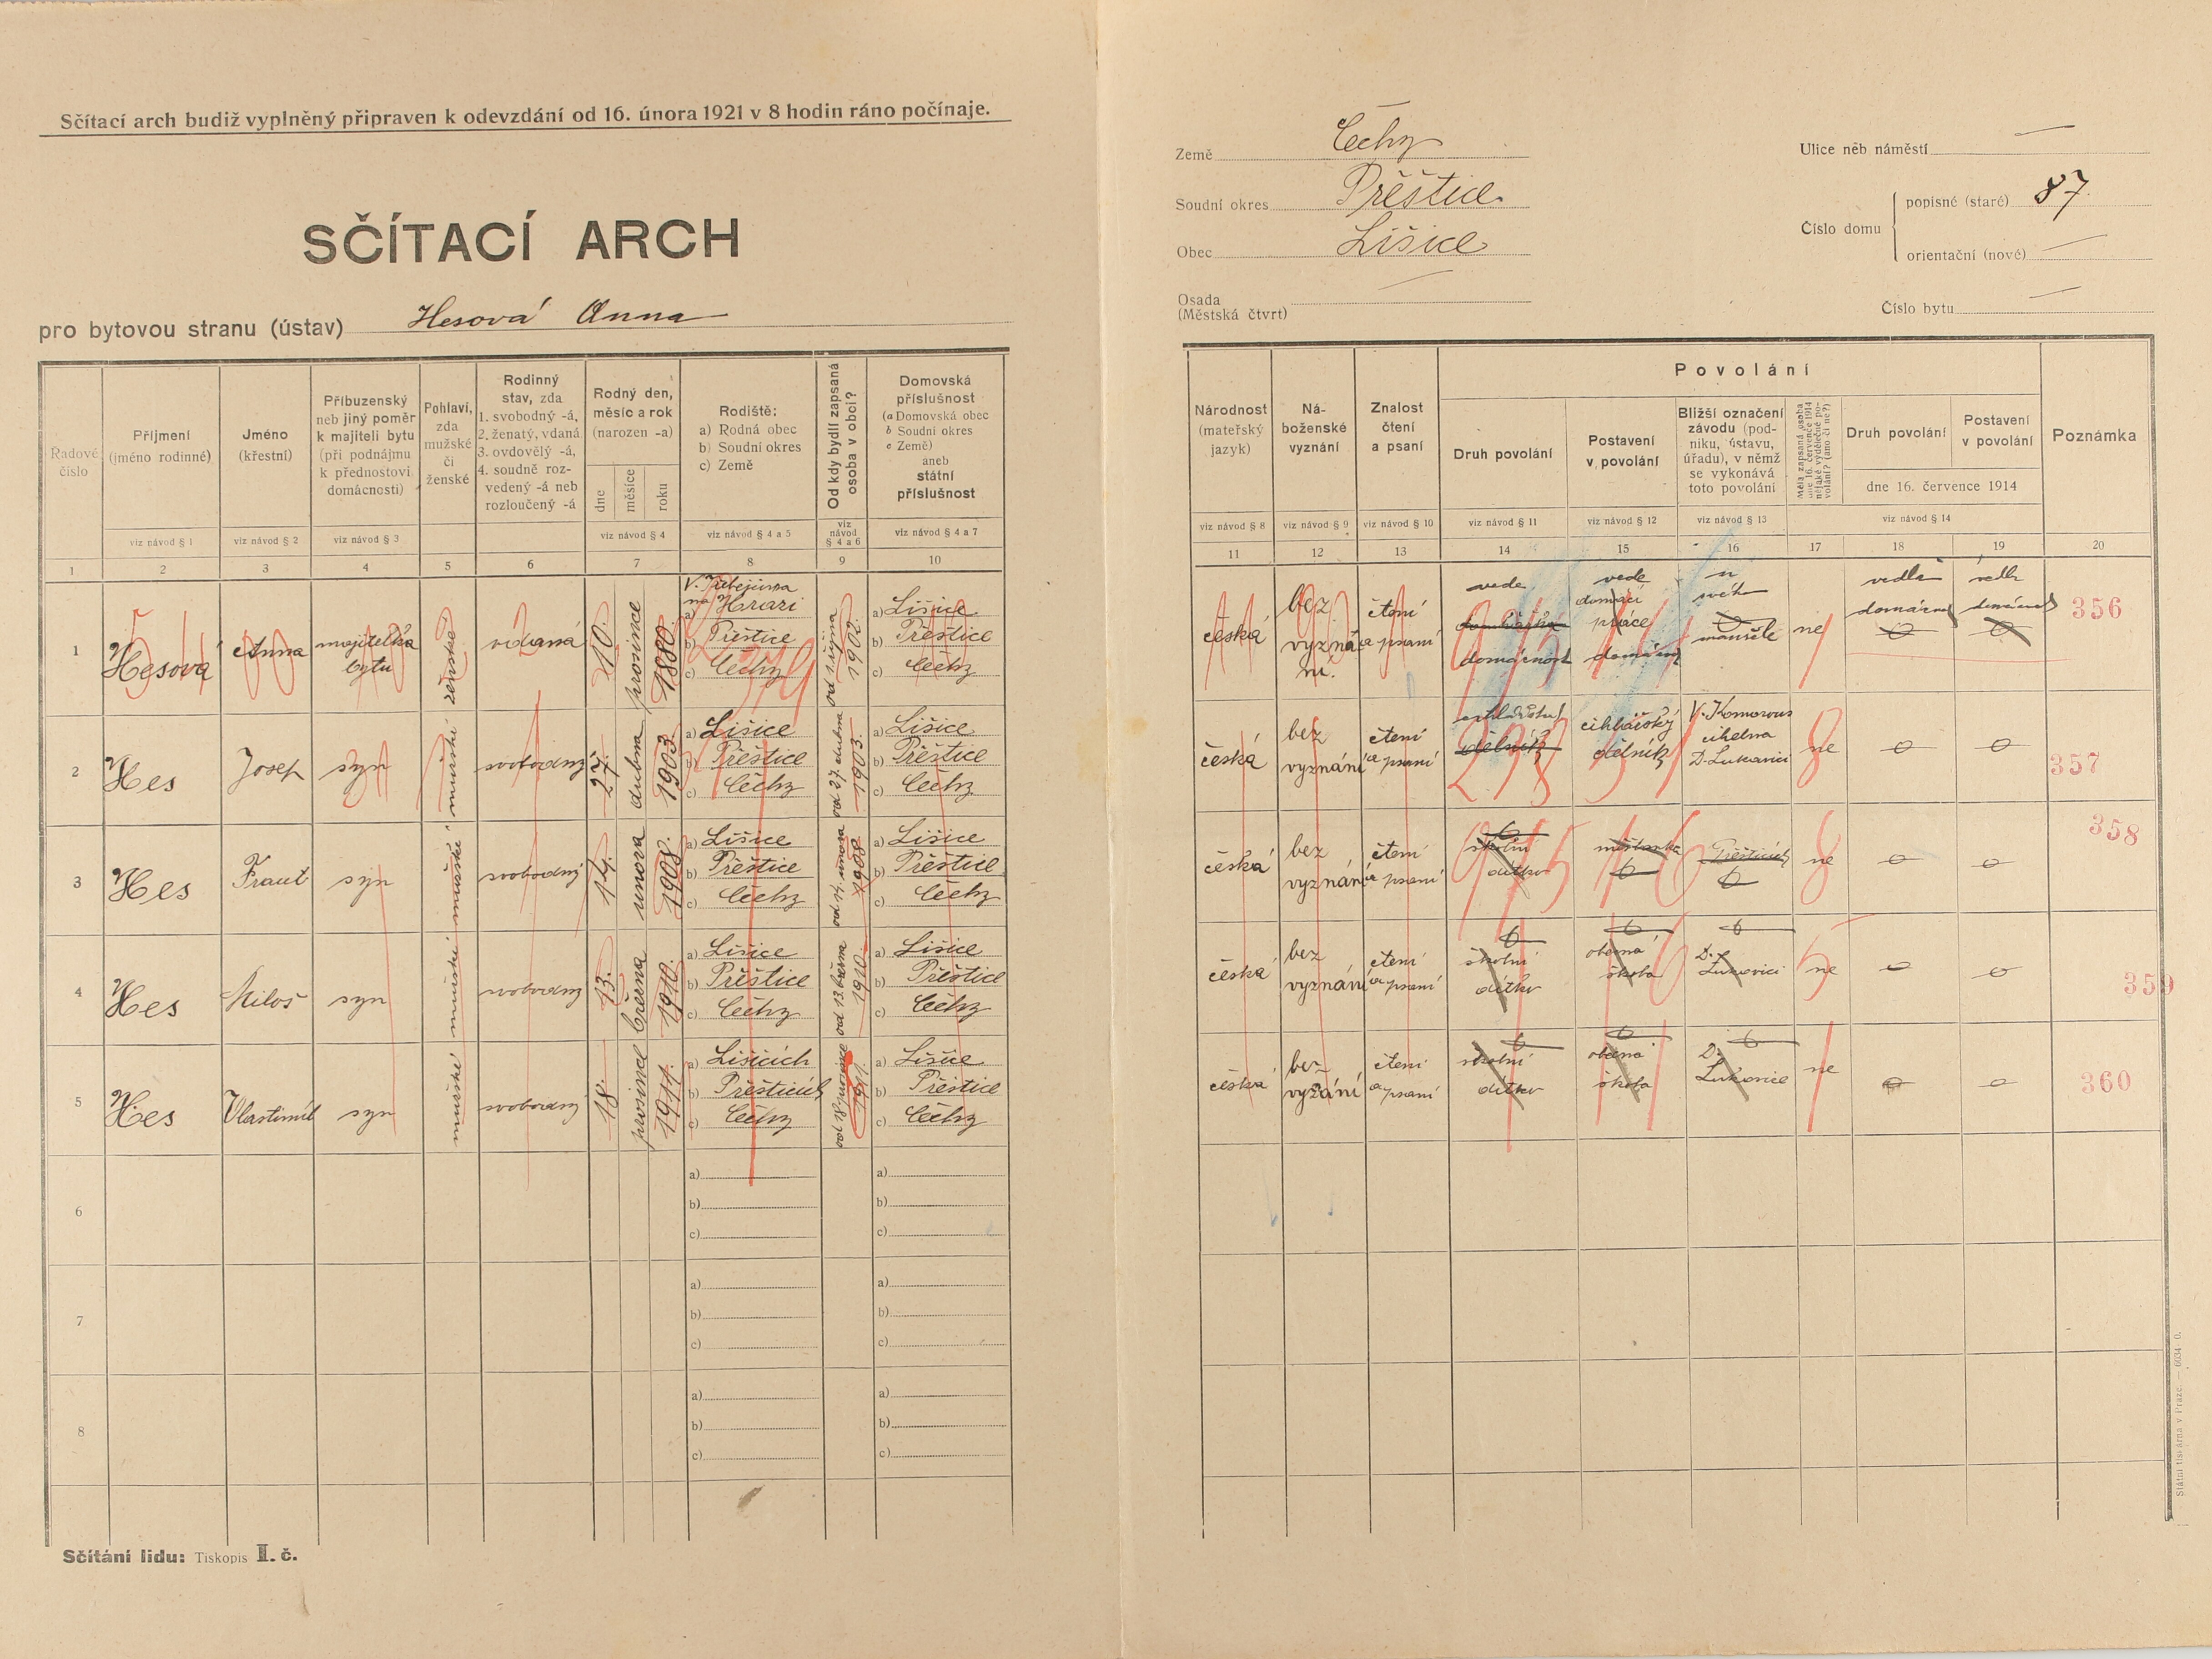 Sčítací arch budiž vyplněný připraven k odevzdání od 16. února 1921 v 8 hodin ráno počínaje.
SČÍTACÍ ARCH
pro bytovou stranu (ústav) Hesová Anna
Země Čechy
Soudní okres Přeštice
Obec Lišice
Osada
(Městská čtvrt)
Ulice neb náměstí
Číslo domu
popisné (staré) 87
orientační (nové)
Číslo bytu
Řadové číslo
Příjmení (jméno rodinné)
Jméno (křestní)
Příbuzenský neb jiný poměr k majiteli bytu (při podnájmu k přednostovi domácnosti)
Pohlaví, zda mužské či ženské
Rodinný stav, zda 1. svobodný -á, 2. ženatý, vdaná 3. ovdovělý -á, 4. soudně rozvedený -á neb rozloučený -á
Rodný den, měsíc a rok (narozen -a)
dne měsíce roku
Rodiště: a) Rodná obec b) Soudní okres c) Země
Od kdy bydlí zapsaná osoba v obci?
Domovská příslušnost (a Domovská obec b Soudní okres c Země) aneb státní příslušnost
Národnost (mateřský jazyk)
Náboženské vyznání
Znalost čtení a psaní
Povolání
Druh povolání
Postavení v povolání
Bližší označení závodu (podniku, ústavu, úřadu), v němž se vykonává toto povolání
Měla zapsaná osoba dne 16. července 1914 nějaké výdělečné povolání? (ano či ne?)
Druh povolání
Postavení v povolání
dne 16. července 1914
Poznámka
viz návod § 1
viz návod § 2
viz návod § 3
viz návod § 4
viz návod § 4 a 5
viz návod § 4 a 6
viz návod § 4 a 7
viz návod § 8
viz návod § 9
viz návod § 10
viz návod § 11
viz návod § 12
viz návod § 13
viz návod § 14
1 2 3 4 5 6 7 8 9 10 11 12 13 14 15 16 17 18 19 20
1 Hesová Anna majitelka bytu ženské vdaná 10. prosince 1880
a)
b) Přeštice
c) Čechy
od 1. října 1902.
a) Lišice
b) Přeštice
c) Čechy
česká bez vyznání. čtení a psaní
vede domácnost
vede domácí práce
manžele
ne
356
2 Hes Josef syn mužské svobodný 27. dubna 1903.
a) Lišice
b) Přeštice
c) Čechy
od 27. dubna 1903.
a) Lišice
b) Přeštice
c) Čechy
česká bez vyznání čtení a psaní
dělník
cihlářský dělník
cihelna D. Lukavici
ne 0 0
357
3 Hes Frant syn mužské svobodný 14. února 1908.
a) Lišice
b) Přeštice
c) Čechy
od 14. února 1908
a) Lišice
b) Přeštice
c) Čechy
česká bez vyznání čtení a psaní
školní dítko
měšťanka
Přešticích
ne 0 0
358
4 Hes Miloš syn mužské svobodný 13. března 1910.
a) Lišice
b) Přeštice
c) Čechy
od 13. března 1910.
a) Lišice
b) Přeštice
c) Čechy
česká bez vyznání čtení a psaní
školní dítko
obecná škola
D. Lukavici
ne 0 0
359
5 Hes Vlastimil syn mužské svobodný 18. prosince 1911.
a) Lišicích
b) Přešticích
c) Čechy
od 18 prosince 1911.
a) Lišice
b) Přeštice
c) Čechy
česká bez vyznání čtení a psaní
školní dítko
obecná škola
D. Lukavice
ne 0 0
360
6
a)
b)
c)
a)
b)
c)
7
a)
b)
c)
a)
b)
c)
8
a)
b)
c)
a)
b)
c)
Sčítání lidu: Tiskopis I. č.
Státní tiskárna v Praze. — 6034 0.